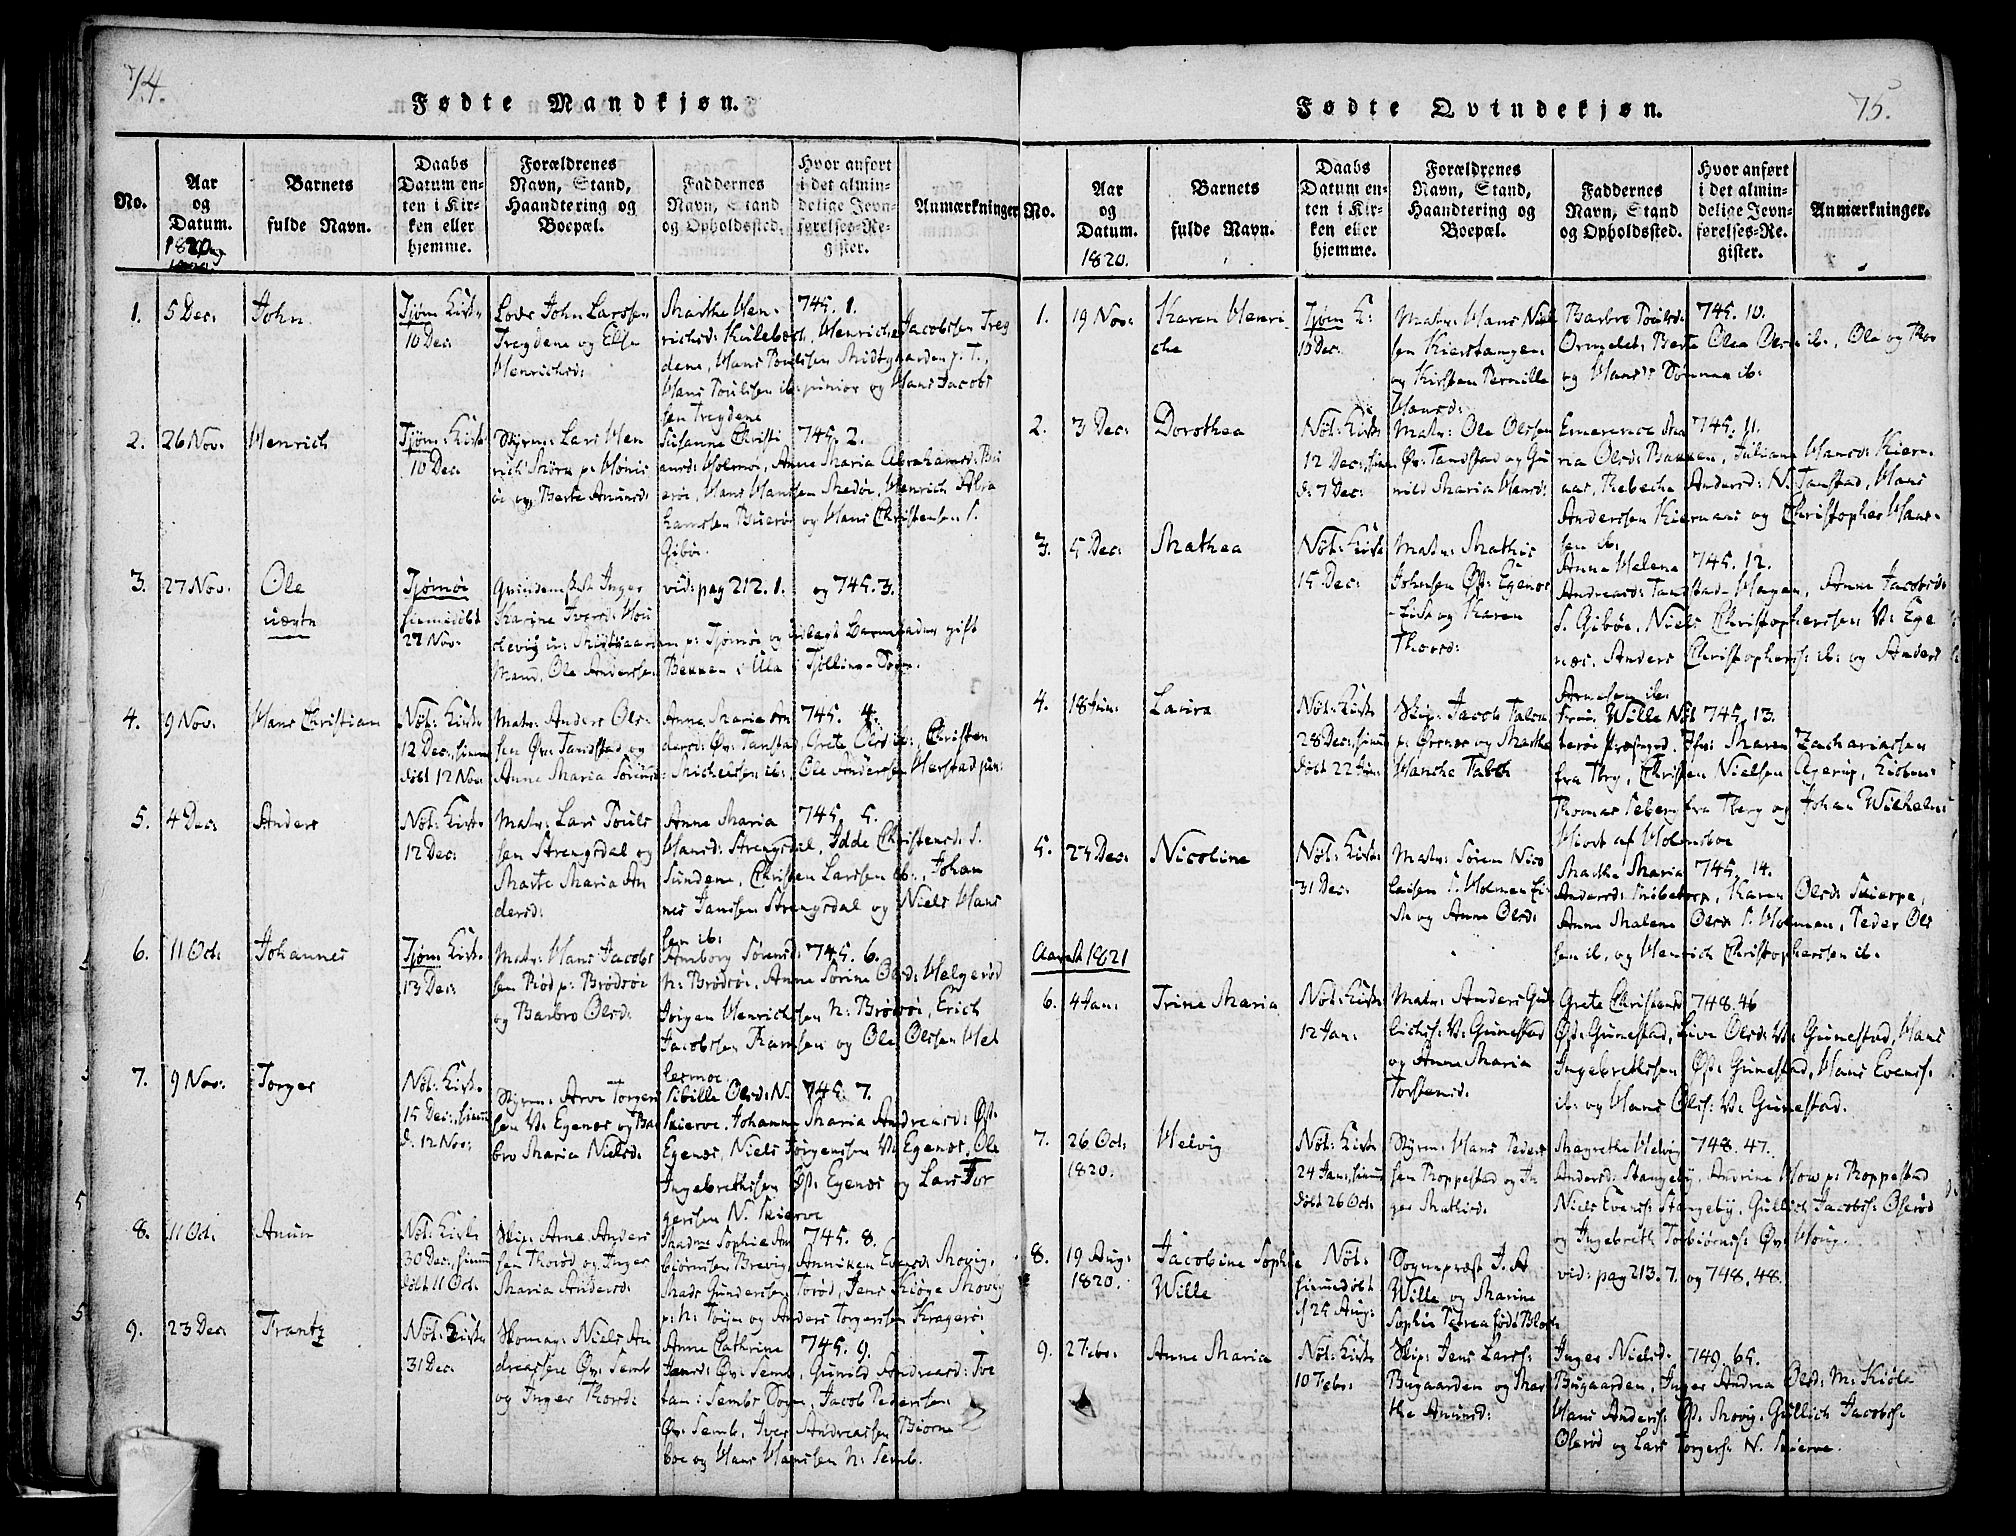 74.
Fødte Mandkjøn.
No.
Aar
og
Datum.
1820
Barnets
fulde Navn.
Daabs
Datum en-
ten i Kir-
ken eller
hjemme.
Forældrenes
Navn, Stand,
Haandtering og
Boepæl.
Faddernes
Navn, Stand
og Opholdssted.
Hvor anført
i det almin-
delige Jevn-
førelses-Re-
gister.
Anmærkninger
1.
5 Dec:
John
Tjøm Kirk-
10 Dec:
Lods John Larssen
Tregdene og Else
Henrichsd:
Marthe Hen-
richsd: Kulebech, Henriche Jacobssen Treg
dene, Hans Poulssen Midtgaarden p. T.,
Hans Poulssen ib: junior og Hans Jacobs
sen Tregdene
745. 1.
2.
26 Nov:
Henrich
Tjøm: Kirk:
10 Dec:
Styrm: Lars Hen
rich Mørk p: Hønis
øe og Berte Amunds:
Susanne Christi
ansd: Holmøe, Anne Maria Abrahamsd: Bu
erøe, Hans Hanssen Medøe, Henrich Abra
hamssen Buerøe og Hans Christensen S.
Gibøe.
745. 2.
3.
27 Nov:
Ole
uægte
Tjømøe
hiemmedøbt
27 Nov:
Qvindemsk: Inger
Karine Iversd: Hou
elevig
p: Tjømøe og udlagt Barnefader gift
Mand, Ole Anderssen Bekken i Ula i Tjølling Sogn.
vid: pag 212. 1. og 745. 3.
4.
9 Nov:
Hans Christian
Nøt: Kirk:
12 Dec:, hiem
døbt 12 Nov:
Matr: Anders Ols-
sen Øv: Tandstad og
Anne Maria Sørensd:
Anna Maria An
dersd: Øv: Tanstad, Grete Olsd ib:, Christen
Michelssen ib: Ole Anderssen Herstad jun:
745. 4.
5.
4 Dec:
Anders
Nøt: Kirk:
12 Dec:
Matr: Lars Pouls
sen Strengsdal og
Marte Maria An
dersd:
Anne Maria
Hansd: Strengsdal, Idde Christensd: S.
Sundene, Christen Larssen ib:, Johan
nes Janssen Strengsdal og Niels Hans
sen ib:
745. 5.
6.
11 Oct:
Johannes
Tjøm: Kirk-
13 Dec:
Matr: Hans Jacobs
sen Rød p: Brødøe
og Barbro Olsd:
Amborg Sørensd:
N: Brødøe, Anne Sørine Olsd: Helgerød
Jørgen Henrichssen N: Brødøe, Erich
Jacobssen Ramsen og Ole Olssen Hel
lermoe
745. 6.
7.
9 Nov:
Torger
Nøt: Kirk-
15 Dec:, hiem
d. 12 Nov:
Styrm: Arve Torger
sen V: Egenes og Bar
bro Maria Nielsd:
Sibille Olsd: N.
Skierve, Johanne Maria Andreasd: Øst:
Egenes, Niels Jørgenssen V: Egenes, Ole
Ingebrethssen Øst: Egenes og Lars Tor
gerssen N. Skierve
745. 7.
8.
11 Oct:
Anun
Nøt: Kirk
30 Dec:, hiem
døbt 11 Oct:
Skip: Arne Anders
sen Thorød og Inger
Maria Andersd:
Madme Sophie An
biørnssen Brevig, Anniken Evensd: Movig,
Mads Gunderssen Torød, Jens Kiøge Movig
p: N: Tøien og Anders Torgerssen Kragerø:
745. 8.
9.
23 Dec:
Frantz
Nøt: Kirk
31 Dec:
Skomag: Niels An
dreassen Øv: Semb
og Inger Thorsd:
Anne Cathrine
Jensd: Øv: Semb, Gunild Andreasd: Tve
tan: Sembs Sogn, Jacob Pederssen
Øv: Semb, Iver Andreassen Biørne
boe og Hans Hanssen N: Semb.
745. 9.
75.
Fødte Qvindekjøn.
No.
Aar
og
Datum.
1820.
Barnets
fulde Navn.
Daabs
Datum en-
ten i Kir-
ken eller
hjemme.
Forældrenes
Navn, Stand,
Haandtering og
Boepæl.
Faddernes
Navn, Stand
og Opholdssted.
Hvor anført
i det almin-
delige Jevn-
førelses-Re-
gister.
Anmærkninger.
1.
19 Nov:
Karen Henri-
che
Tjøm K:
10 Dec.
Matr: Hans Niels
sen Kierstangen
og Kirsten Pernille
Hansd:
Barbro Poulsd:
Ormelet: Berte Olea Olsd: ib:, Ole og Thor
og Hansd: Sønnen ib:
745. 10.
2.
3 Dec:
Dorothea
Nøt: Kirk
12 Dec:, hiem
d: 7 Dec:
Matr: Ole Olssen
Øv: Tandstad og Gu
nild Maria Hansd:
Emerence Ma
ria Olsd: Bakken, Juliane Hansd: Kiern
aas, Rebecke Andersd: N. Tanstad, Hans
Anderssen Kiernaas og Christopher Hans-
sen ib:
745. 11.
3.
5 Dec:
Mathea
Nøt: Kirk
15 Dec:
Matr: Mathis
Johnsen Øst: Egenes
-Eie og Karen
Thorsd:
Anne Helene
Andreasd: Tandstad-Hagen, Anne Jacobsd:
S. Gibøe, Niels Christopherssen V: Ege
nes, Anders Christopherss: ib: og Anders
Arnesen ib:
745. 12.
4.
18 Jun:
Lavra
Nøt: Kirk
28 Dec:, hiem
døbt 22 Jun:
Skip: Jacob Falch
p: Ørsnes og Marthe
Hanche Falch
Frue Wille Nøt
terøe Præstegrd. Jfr: Maren Zachariassen
fra Tbrg, Christen Nielsen Agerup, Kiøbm:
Thomas Seberg fra Tberg og Johan Wilhelm
Hiort af Holmsboe
745. 13.
5.
23 Dec:
Nicoline
Nøt: Kirk:
31 Dec:
Matr: Søren Nico
laisen S. Holmen Ei-
e og Anne Olsd:
Marthe Maria
Andersd: Rubetorp, Karen Olsd: Skierpe,
Anne Malene Olsd S. Holmen, Peder Ols
sen ib, og Henrich Christopherssen ib.
745. 14.
Aaret 1821
6.
4 Jan:
Trine Maria
Nøt: Kirk:
12 Jan:
Matr: Anders Gul
lichss: V: Gunestad
og Anne Maria
Torstensd:
Grete Christensd:
Øst: Gunestad, Live Olsd: V: Gunestad, Hans
Ingebrethssen Øst: Gunestad, Hans Evenss:
ib: og Hans Olss: V: Gunestad.
748. 46
7.
26 Oct:
1820.
Helvig
Nøt: Kirk
24 Jan:, hiem
døbt 26 Oct:
Styrm: Hans Peders
sen Roppestad og In
ger Mathisd:
Magrethe Helvig
Andersd: Stangeby, Andrine How p: Roppestad
Niels Evenss: Stangeby, Gullich Jacobss: Oserød
og Ingebreth Torbiørnss: Øv: Houg.
748. 47.
8.
19 Aug:
1820.
Jacobine Sophie
Wille
Nøt:
hiemmedøbt
25 Aug:
Sognepræst J. A
Wille og Marine
Sophie Petrea født Bloch
vid: pag 213. 7. og 748. 48.
9.
2 Febr:
Anne Maria
Nøt: Kirk
10 Febr:
Skip: Jens Larss:
Bugaarden og Mar
the Amunsd:
Inger Nielsd.
Bugaarden, Inger Andrea Olsd: M: Kiøle
Hans Anderss: Øst. Movig, Gullich Jacobss:
Oserød og Lars Torgerss: N. Skierve.
749. 65.